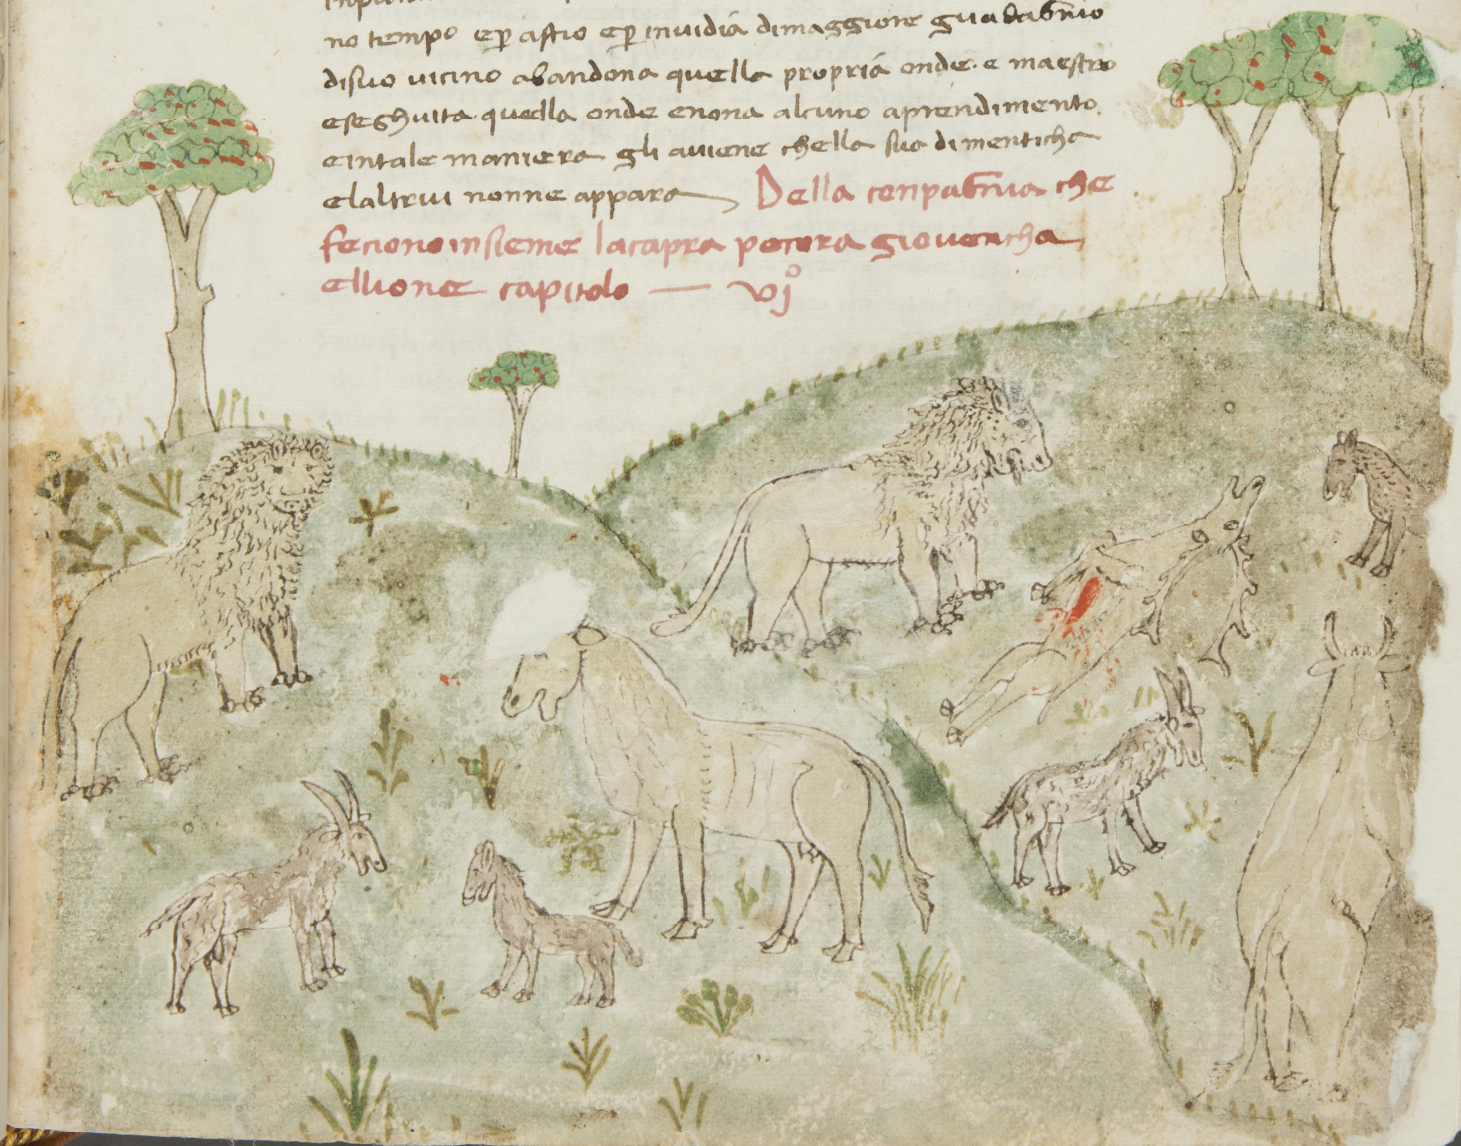 no tempo ep astio ep inuidia dimaggiore guadagnio
disuo uicino abandona quella propria onde e maestro
eseghuita quella onde enona alcuno aprendimento.
eintale maniera gli auiene chella sua dimenticha
elaltrui nonne appara Della conpagnia che
feciono insieme lacapra pecora giouencha
ellione capitolo — vjº